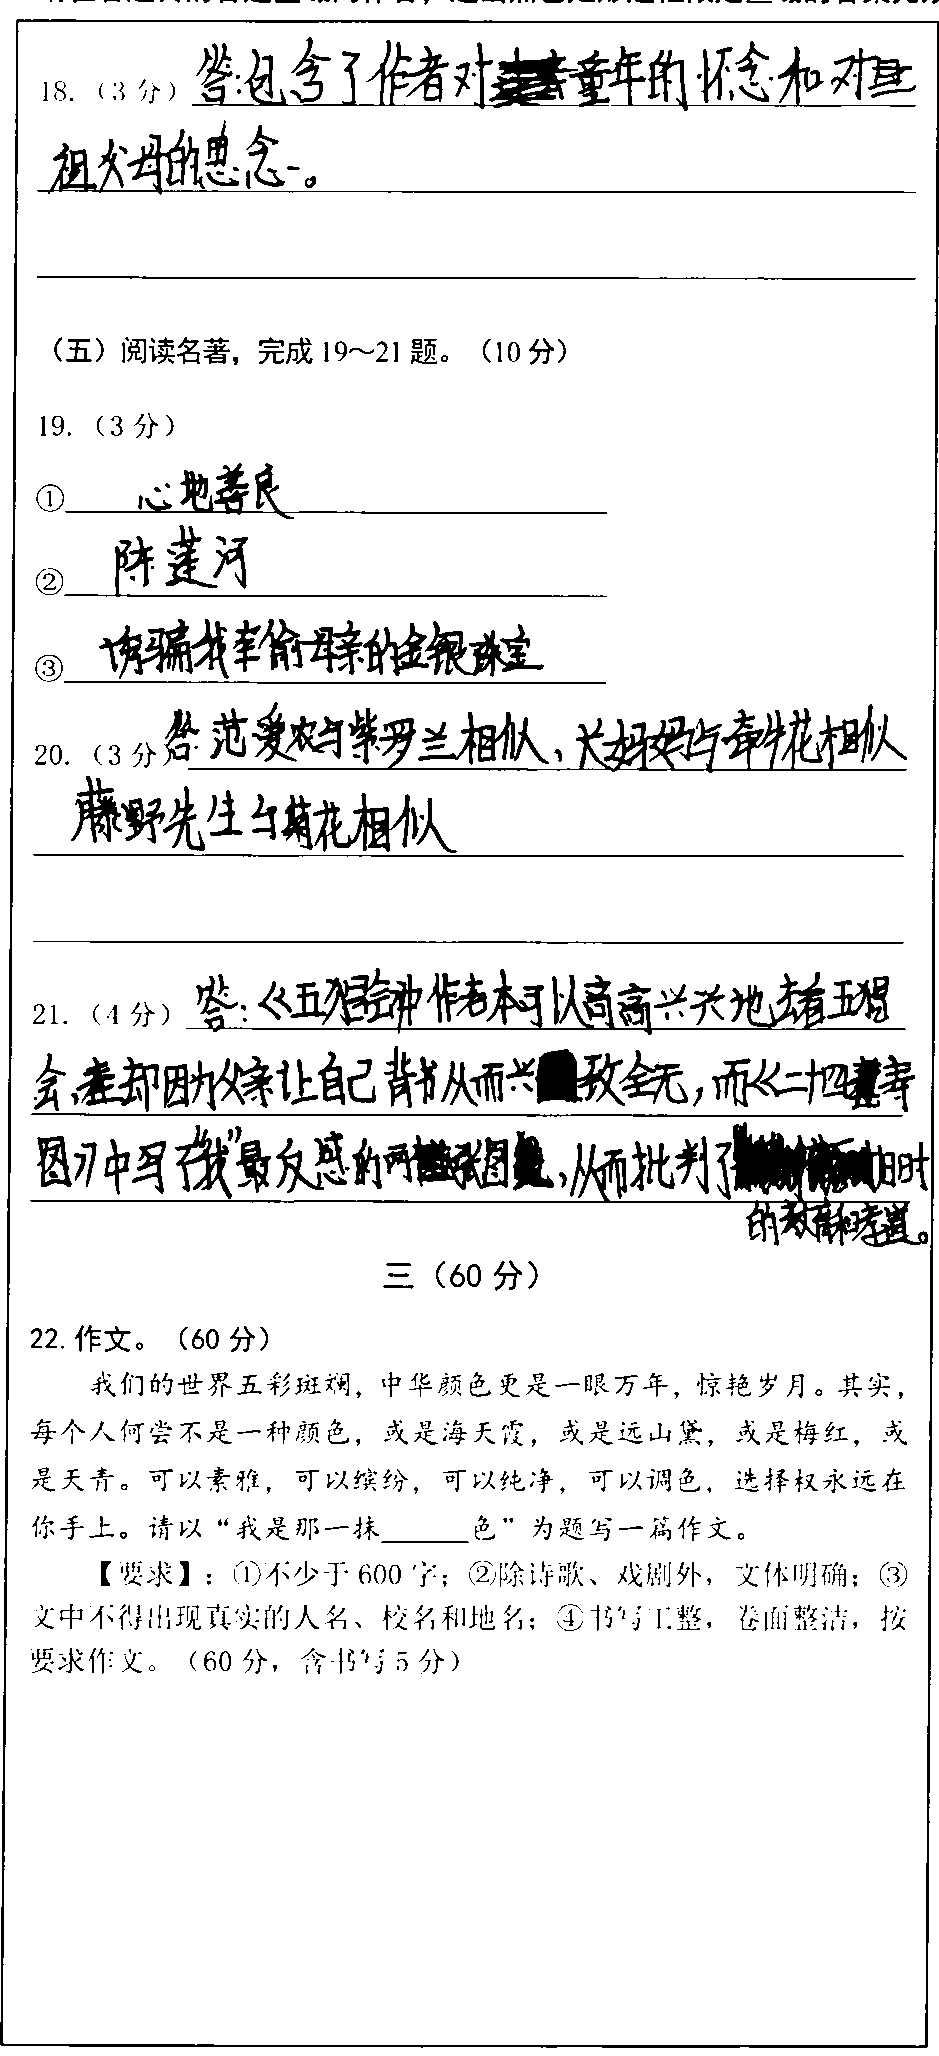 18.（3分）答:包含了作者对童年的怀念和对
祖父母的思念。
（五）阅读名著，完成19～21题。（10分）
19.（3分）
① 心地善良
② 陈莲河
③ 诱骗我去偷母亲的金银珠宝
20.（3分）答:范爱农与紫罗兰相似、长妈妈与牵牛花相似
藤野先生与菊花相似
21.（4分）答:《五猖会》中作者本可以高高兴兴地去看五猖
会,却因为父亲让自己背书从而兴致全无,而《二十四孝
图》中写了"我"最反感的两张图,从而批判了旧时
的教育和孝道。
三（60分）
22.作文。（60分）
我们的世界五彩斑斓，中华颜色更是一眼万年，惊艳岁月。其实，
每个人何尝不是一种颜色，或是海天霞，或是远山黛，或是梅红，或
是天青。可以素雅，可以缤纷，可以纯净，可以调色，选择权永远在
你手上。请以“我是那一抹______色”为题写一篇作文。
【要求】：①不少于600字；②除诗歌、戏剧外，文体明确；③
文中不得出现真实的人名、校名和地名；④书写工整，卷面整洁，按
要求作文。（60分，含书写5分）